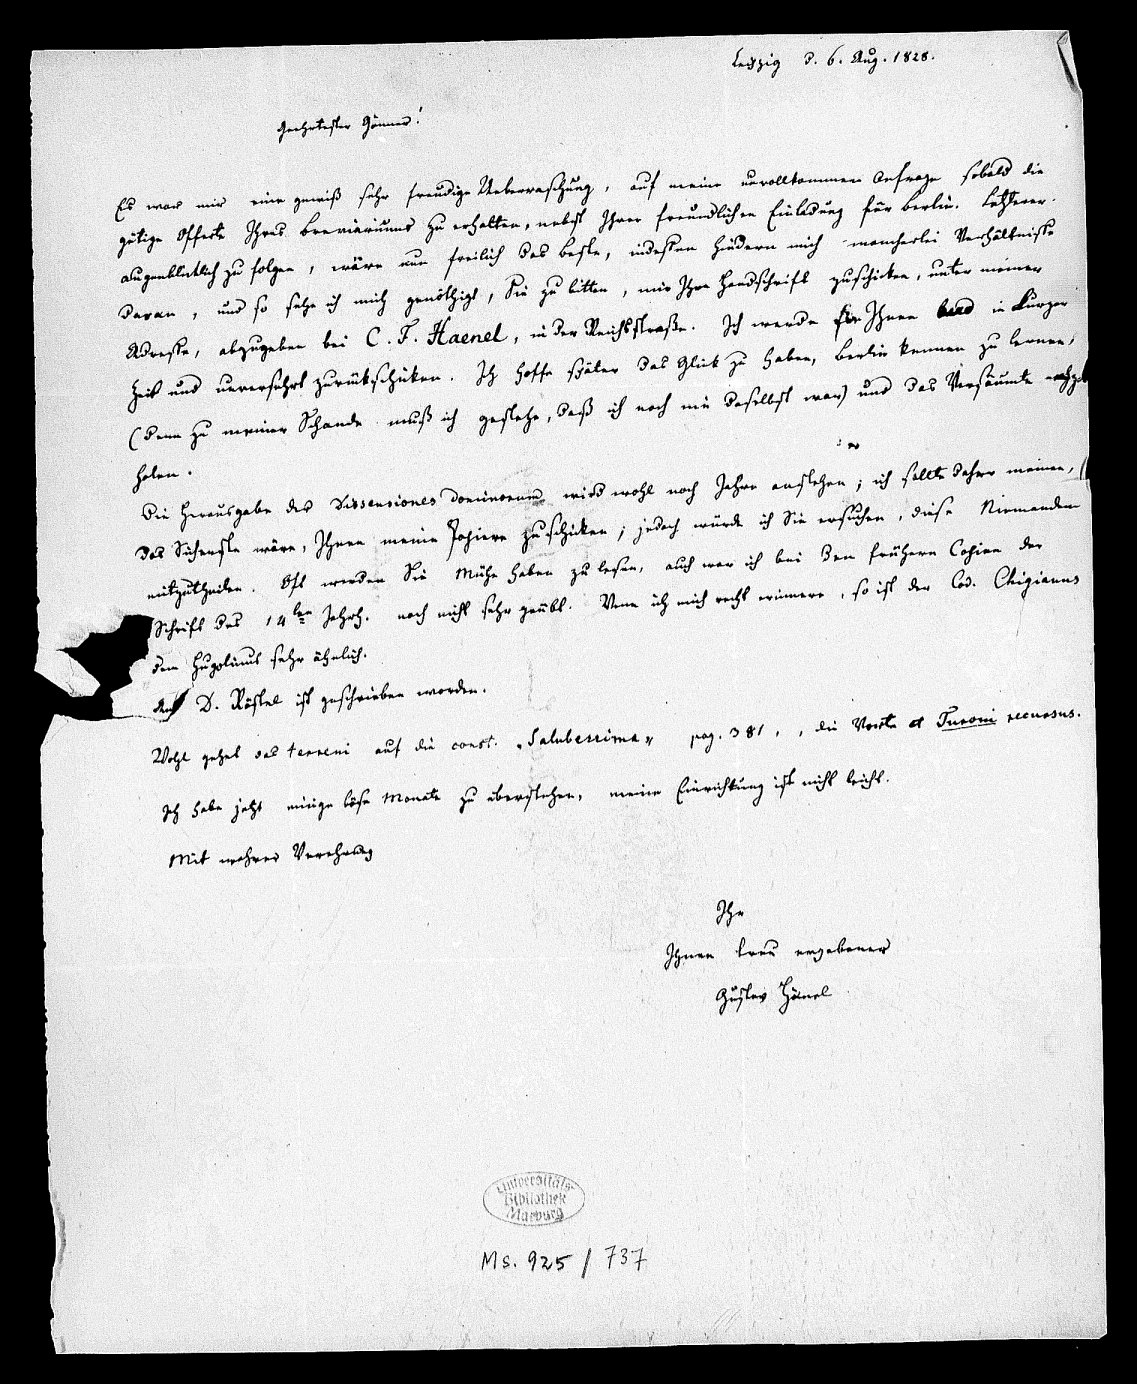 Leipzig d. 6. Aug. 1828.
Geehrtester Gönner!
Es war mir eine gewiß sehr freudige Ueberraschung, auf meine unvollkommene Anfrage sobald die
gütige Offerte Ihres Breviariums zu erhalten, nebst Ihrer freundlichen Einladung für Berlin. Letzterer
augenblicklich zu folgen, wäre nun freilich das beste, indessen hindern mich mancherlei Verhältnisse
daran, und so sehe ich mich genöthigt, Sie zu bitten, mir Ihre Handschrift zuschicken, unter meiner
Adresse, abzugeben bei C. F. Haenel, in der Reichsstraße. Ich werde sie Ihnen bald in kurzer
Zeit und unversehrt zurückschicken. Ich hoffe später das Glück zu haben, Berlin kennen zu lernen,
(denn zu meiner Schande muß ich gestehe, daß ich noch nie daselbst war) und das Versäumte
holen.
Die Herausgabe der Dissensiones dominorum wird wohl noch Jahre anstehen; ich sollte daher meinen,
das Sicherste wäre, Ihnen meine Papiere zuschicken; jedoch würde ich Sie ersuchen, diese Niemandem
mitzutheilen. Oft werden Sie Mühe haben zu lesen, auch war ich bei den frühern Copien der
Schrift des 14ten Jahrh. noch nicht sehr geübt. Wenn ich mich recht erinnere, so ist der Cod. Chigianus
dem Hugolinus sehr ähnlich.
An D. Röstel ist geschrieben worden.
Wohl gehet das terreni auf die const. "Saluberrima" pag. 381., die Worte et Turoni recursus.
Ich habe jetzt einige böse Monate zu überstehen, meine Einrichtung ist nicht leicht.
Mit wahrer Verehrung
Ihr
Ihnen treu ergebener
Gustav Hänel
Universitäts
Bibliothek
Marburg
Ms. 925 / 737